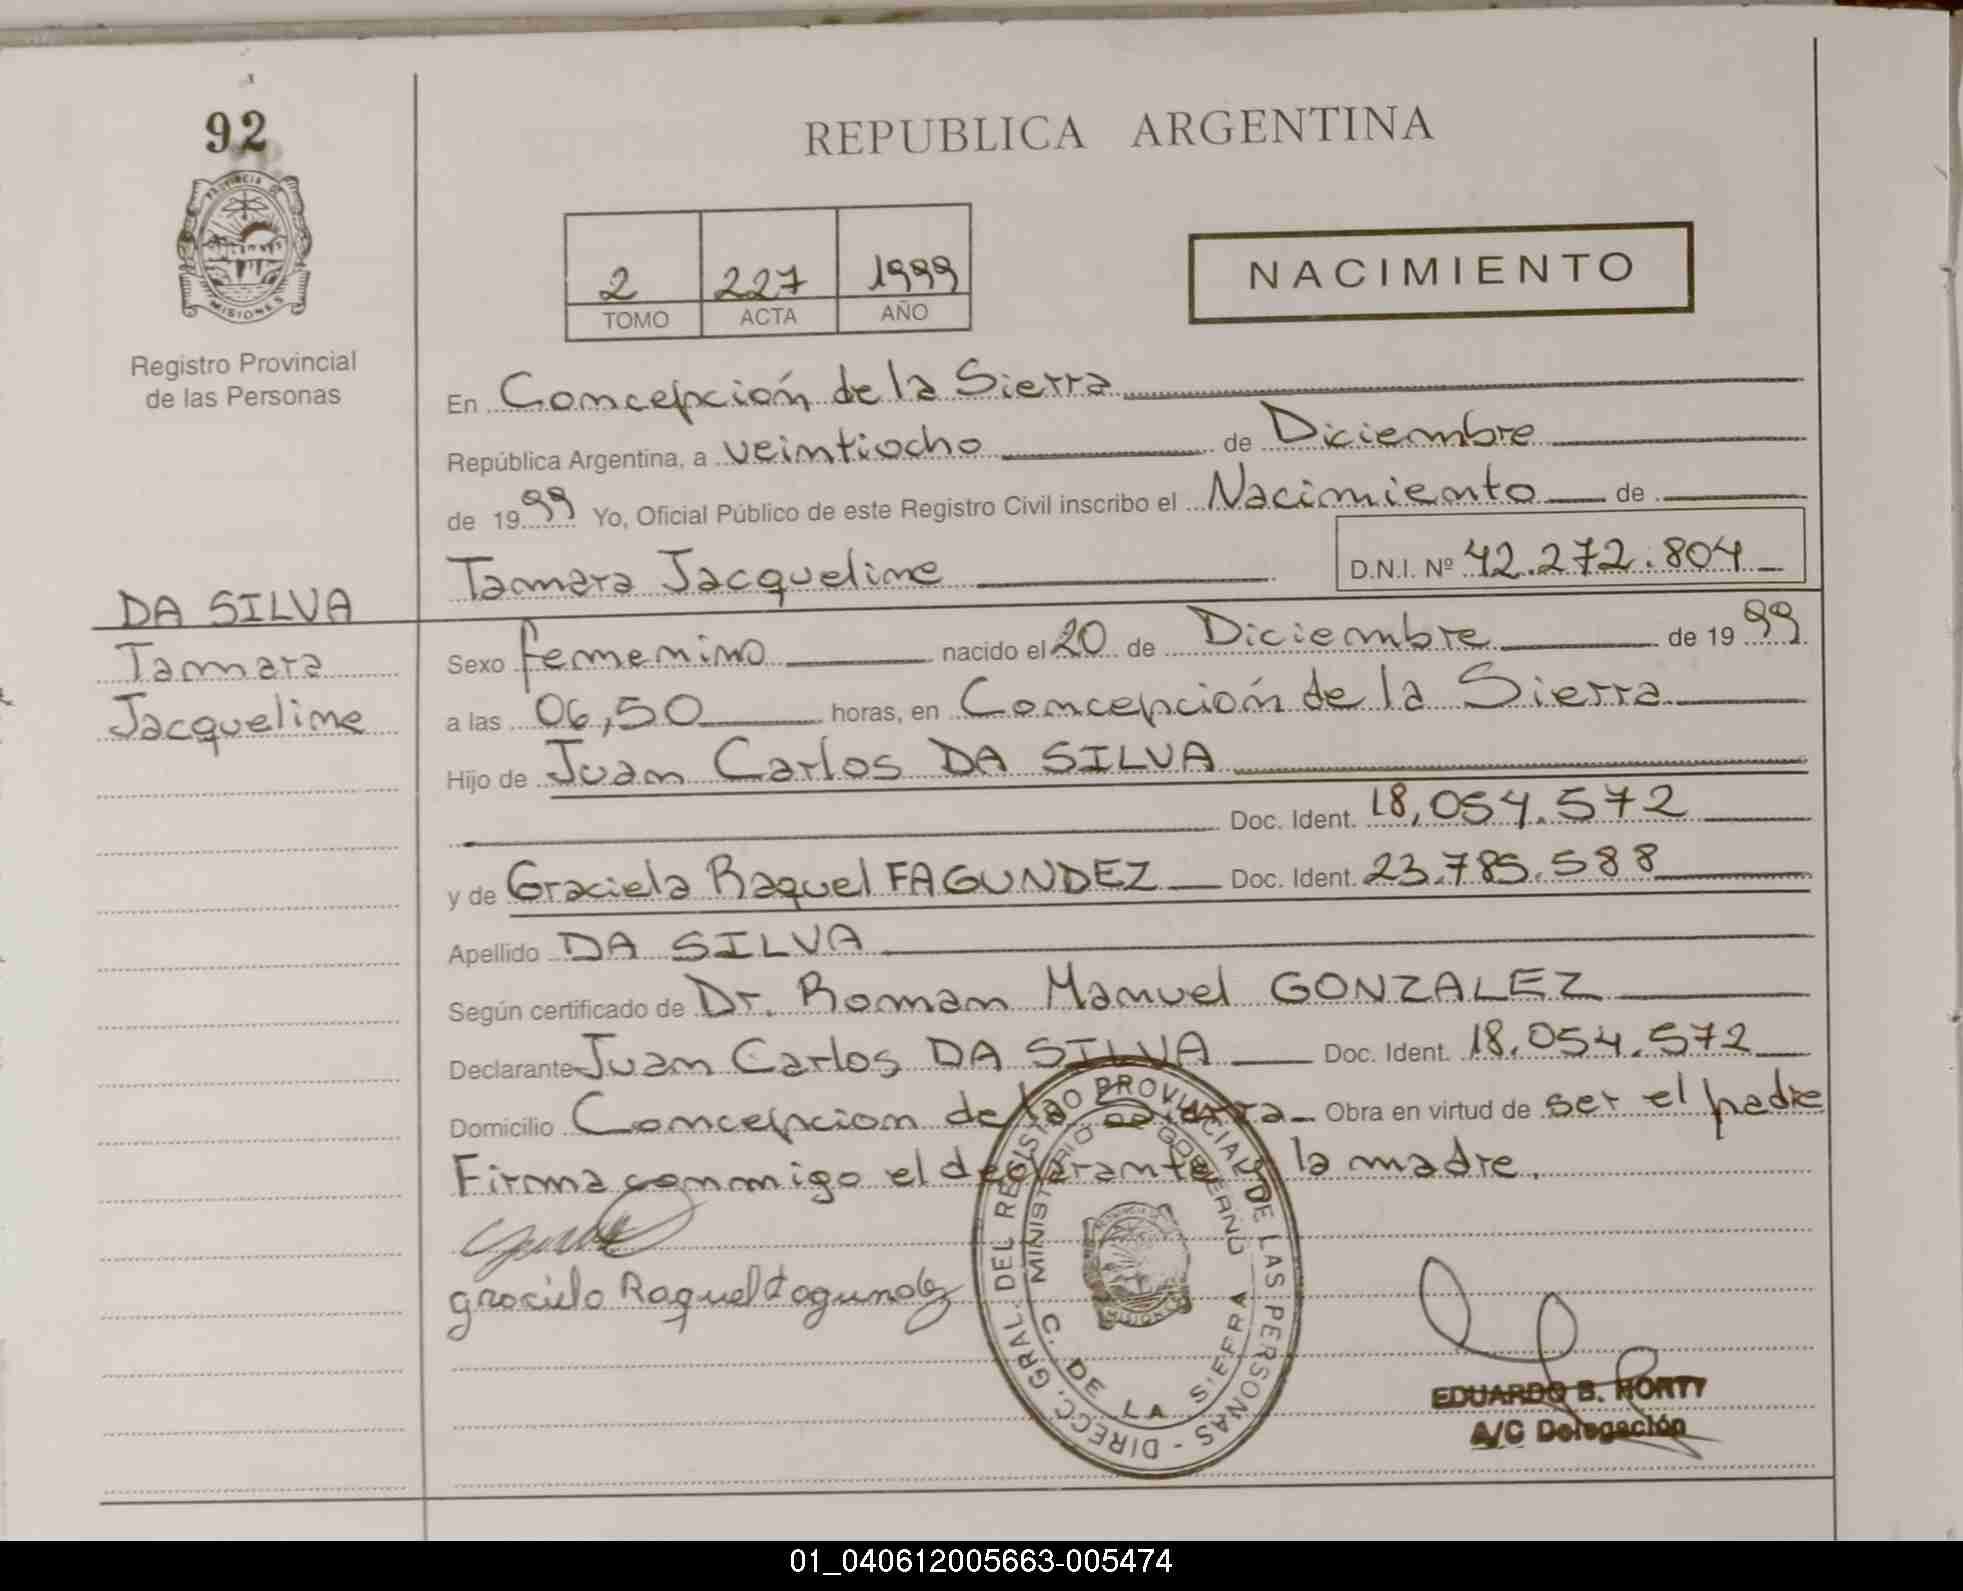 92
PROVINCIA DE
MISIONES
Registro Provincial
de las Personas
DA SILVA
Tamara
Jacqueline
REPUBLICA ARGENTINA
2 227 1999
TOMO ACTA AÑO
NACIMIENTO
En Concepción de la Sierra
República Argentina, a veintiocho de Diciembre
de 1999 Yo, Oficial Público de este Registro Civil inscribo el Nacimiento de
Tamara Jacqueline D.N.I. Nº 42.272.804
Sexo femenino nacido el 20 de Diciembre de 1999
a las 06,50 horas, en Concepción de la Sierra
Hijo de Juan Carlos DA SILVA
Doc. Ident. 18,054.572
y de Graciela Raquel FAGUNDEZ Doc. Ident. 23.785.588
Apellido DA SILVA
Según certificado de Dr. Roman Manuel GONZALEZ
Declarante Juan Carlos DA SILVA Doc. Ident. 18.054.572
Domicilio Concepcion de la Sierra Obra en virtud de ser el padre
Firma conmigo el declarante y la madre.
graciela Raquel Fagundez
DIRECC. GRAL. DEL REGISTRO PROVINCIAL DE LAS PERSONAS -
MINISTERIO DE GOBIERNO
C. DE LA SIERRA
MISIONES
EDUARDO B. HORTY
A/C Delegación
01_040612005663-005474